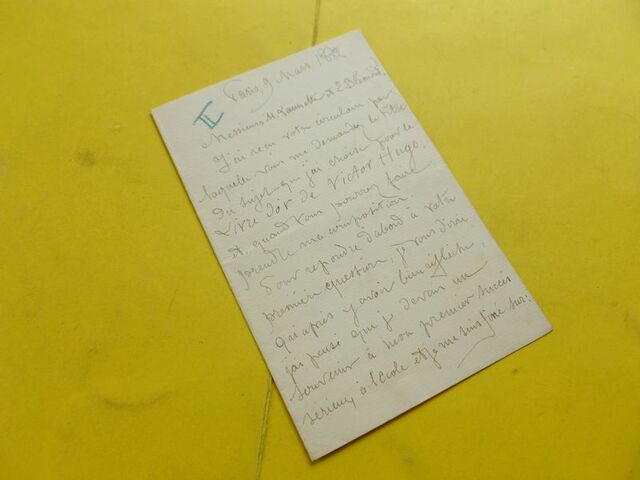 II
Paris, 9 Mars 1882
Messieurs H. Launette et E. Blémont,
J'ai reçu votre circulaire par
laquelle vous me demandez le titre
du sujet que j'ai choisi pour le
Livre d'or de Victor Hugo,
et quand vous pourrez faire
prendre ma composition.
Pour repondre d'abord à votre
premiere question, je vous dirai
qu'apres y avoir bien réfléchi,
j'ai pensé que je devais un
souvenir à mon premier succès
serieux, à l'école et je me suis fixé sur: